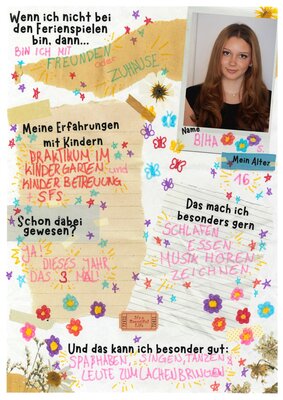 Wenn ich nicht bei
den Ferienspielen
bin, dann...
BIN ICH MIT
FREUNDEN
oder
ZUHAUSE
Name
BIHA S.
Mein Alter
16
Meine Erfahrungen
mit Kindern
PRAKTIKUM IM
KINDERGARTEN und
KINDER BETREUUNG
+ SFS
Schon dabei
gewesen?
JA!
DIESES JAHR
DAS 3. MAL!
Das mach ich
besonders gern
SCHLAFEN
ESSEN
MUSIK HÖREN
ZEICHNEN
Und das kann ich besonder gut:
SPAẞHABEN, SINGEN, TANZEN &
LEUTE ZUM LACHEN BRINGEN